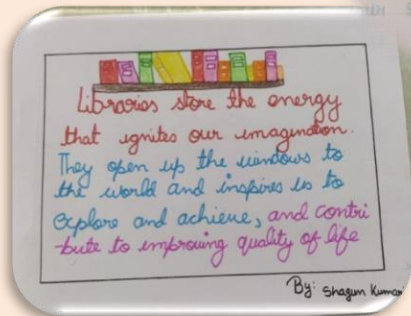 Libraries store the energy
that ignites our imagination.
They open up the windows to
the world and inspires us to
explore and achieve, and contri
-bute to improving quality of life
By: Shagun Kumari